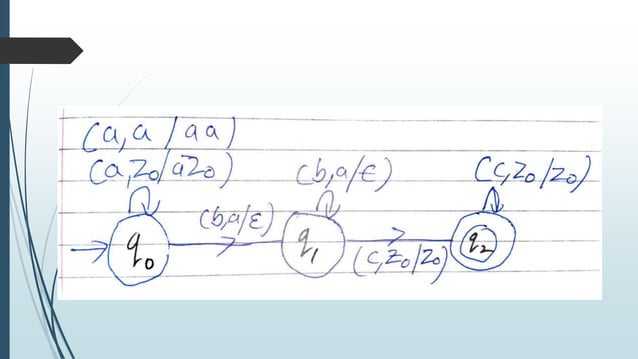 (a,a/aa)
(a,Z₀/aZ₀) (b,a/ε) (c,Z₀/Z₀)
(b,a/ε)
q₀ q₁ q₂
(c,Z₀/Z₀)